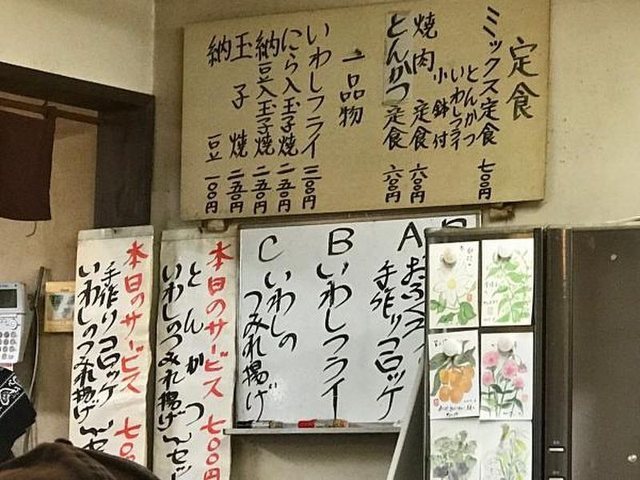 定食
ミックス定食 七〇〇円
とんかつ
いわしフライ
小鉢付
焼肉定食 六〇〇円
とんかつ定食 六〇〇円
一品物
いわしフライ 三〇〇円
にら入玉子焼 二五〇円
納豆入玉子焼 二五〇円
玉子焼 二五〇円
納豆 一〇〇円
A
手作りコロッケ
B
いわしフライ
C
いわしの
つみれ揚げ
本日のサービス 七〇〇円
とんかつ
いわしのつみれ揚げ
本日のサービス 七〇
手作りコロッケ
いわしのつみれ揚げ